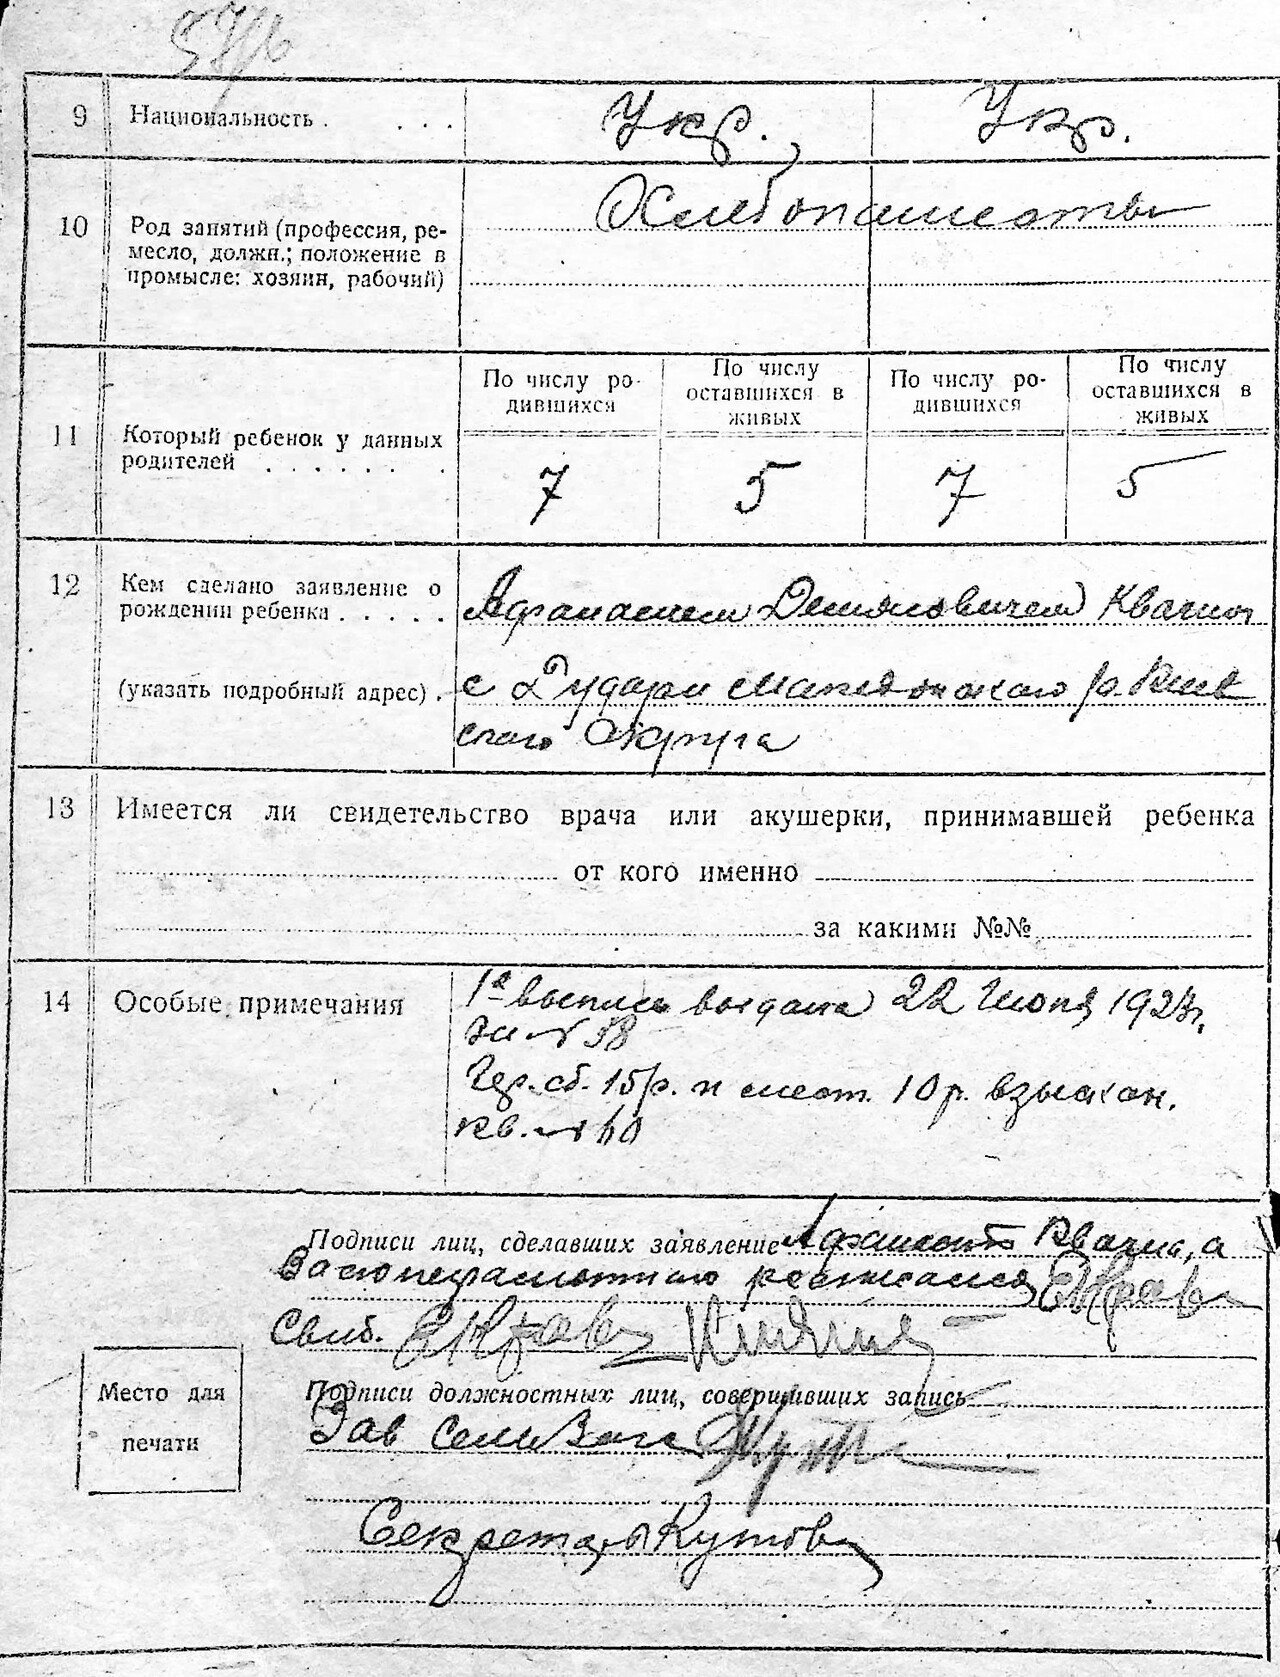 9 Национальность . . . . Укр. Укр.
10 Род занятий (профессия, ре-
месло, должн.; положение в
промысле: хозяин, рабочий)
Хлебопашеством
11 Который ребенок у данных
родителей . . . . . . .
По числу ро-
дившихся
По числу
оставшихся в
живых
По числу ро-
дившихся
По числу
оставшихся в
живых
7 5 7 5
12 Кем сделано заявление о
рождении ребенка . . . . .
(указать подробный адрес) .
Афанасием Демяновичем
с Дудари Македонского р. Киев
ского Округа
13 Имеется ли свидетельство врача или акушерки, принимавшей ребенка
от кого именно
за какими №№
14 Особые примечания
1я выпись выдана 22 Июня 1923г.
За № 58
Гер. сб. 15р. и мест. 10р. взыскан.
кв. №
Подписи лиц, сделавших заявление
а
неграмотного
Свид.
Место для
печати
Подписи должностных лиц, совершивших запись
Зав
Секретарь